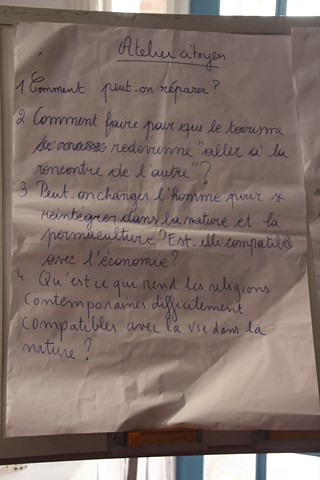 Atelier citoyen
1. Comment peut-on réparer?
2 Comment faire pour que le tourisme
redevienne "aller à la
rencontre de l'autre"?
3. Peut-on changer l'homme pour se
réintégrer dans la nature et la
permaculture? Est-elle compatible
avec l'économie?
4. Qu'est ce qui rend les religions
contemporaines difficilement
compatibles avec la vie dans la
nature?